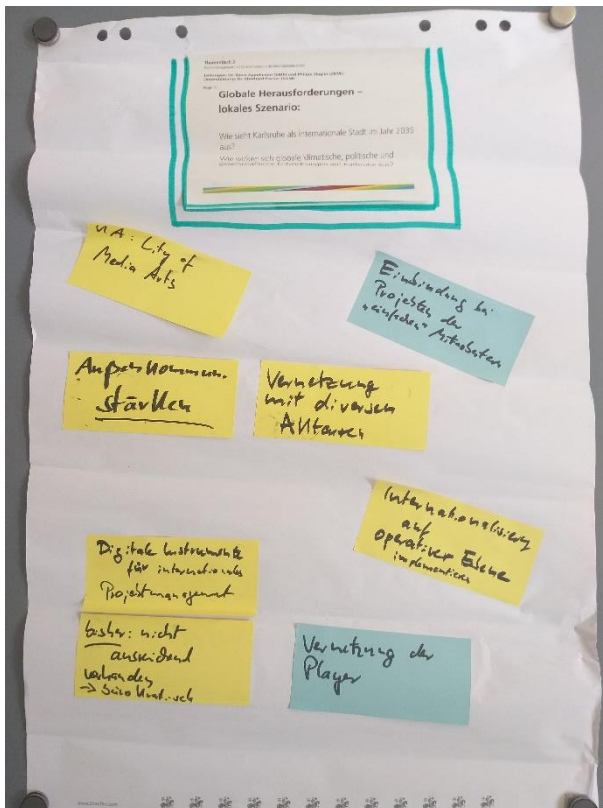 Globale Herausforderungen –
lokales Szenario:
Wie sieht Karlsruhe als internationale Stadt im Jahr 2035
aus?
Wie wirken sich globale klimatische, politische und
u.A.: City of
Media Arts
Einbindung bei
Projekten der
"einfachen" Mitarbeiter
Außenkommun.
stärken
Vernetzung
mit diversen
Akteuren
Internationalisierung
auf
operativer Ebene
implementieren
Digitale Instrumente
für internationales
Projektmanagement
bisher: nicht
ausreichend
vorhanden
→ bürokratisch
Vernetzung der
Player